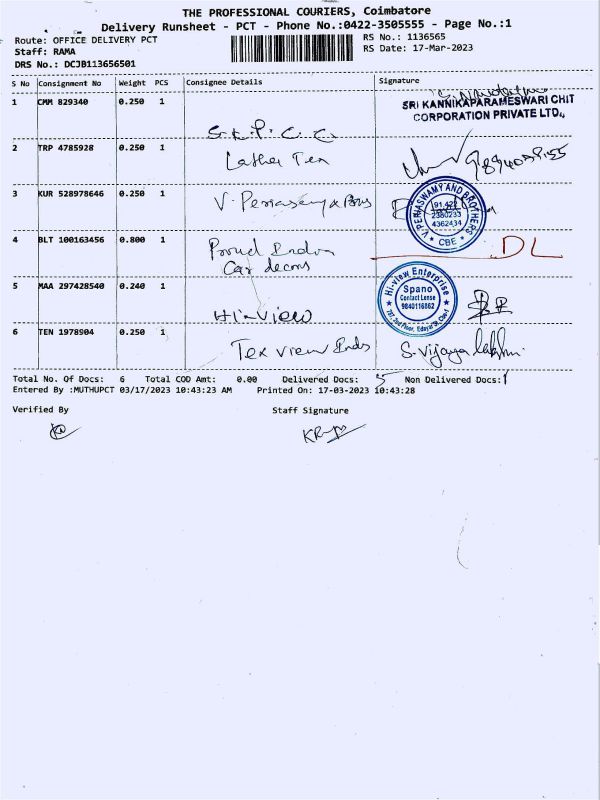 THE PROFESSIONAL COURIERS, Coimbatore
Delivery Runsheet - PCT - Phone No.:0422-3505555 - Page No.:1
Route: OFFICE DELIVERY PCT
RS No.: 1136565
Staff: RAMA
RS Date: 17-Mar-2023
DRS No.: DCJB113656501
S No Consignment No Weight PCS Consignee Details Signature
1 CMM 829340 0.250 1
SRI KANNIKAPARAMESWARI CHIT
CORPORATION PRIVATE LTD.,
S.K.P.C.C.
2 TRP 4785928 0.250 1
Lather Tex
3 KUR 528978646 0.250 1
V. Periasamy & Bros
V. PERIASWAMY AND BROTHERS
2380233
4362434
CBE
4 BLT 100163456 0.800 1
Car decors
DL
5 MAA 297428540 0.240 1
Hi-View
Hi-view Enterprise
Spano
Contact Lense
9840116862
6 TEN 1978904 0.250 1
Tex view Inds
S. Vijaya lakshmi
Total No. Of Docs: 6 Total COD Amt: 0.00 Delivered Docs: 5 Non Delivered Docs: 1
Entered By :MUTHUPCT 03/17/2023 10:43:23 AM Printed On: 17-03-2023 10:43:28
Verified By Staff Signature